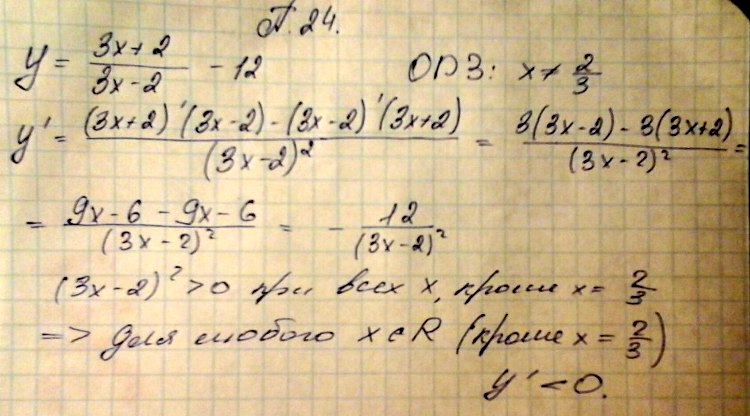 П. 24.
y = (3x+2)/(3x-2) - 12 ОДЗ: x ≠ 2/3
y' = ((3x+2)'(3x-2) - (3x-2)'(3x+2))/(3x-2)² = (3(3x-2) - 3(3x+2))/(3x-2)² =
= (9x-6-9x-6)/(3x-2)² = - 12/(3x-2)²
(3x-2)² > 0 при всех x, кроме x = 2/3
=> для любого x ∈ R (кроме x = 2/3)
y' < 0.